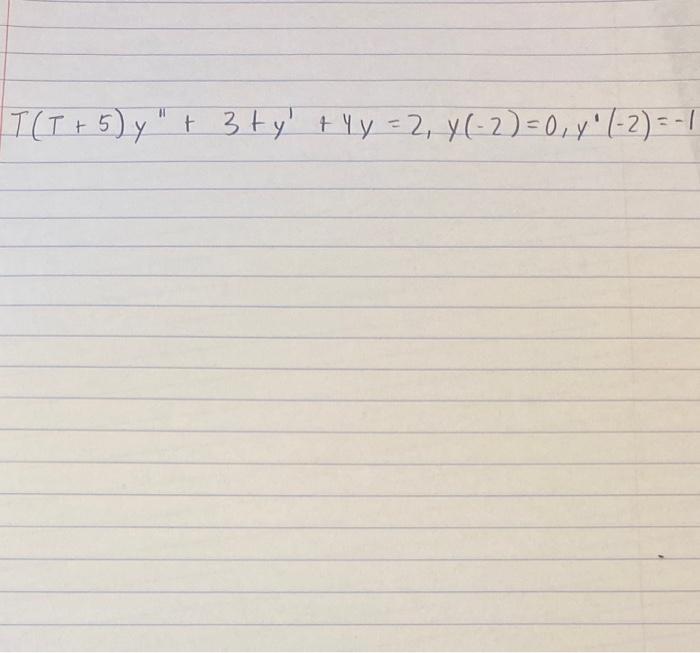 T(T+5)y" + 3ty' + 4y = 2, y(-2)=0, y'(-2)=-1